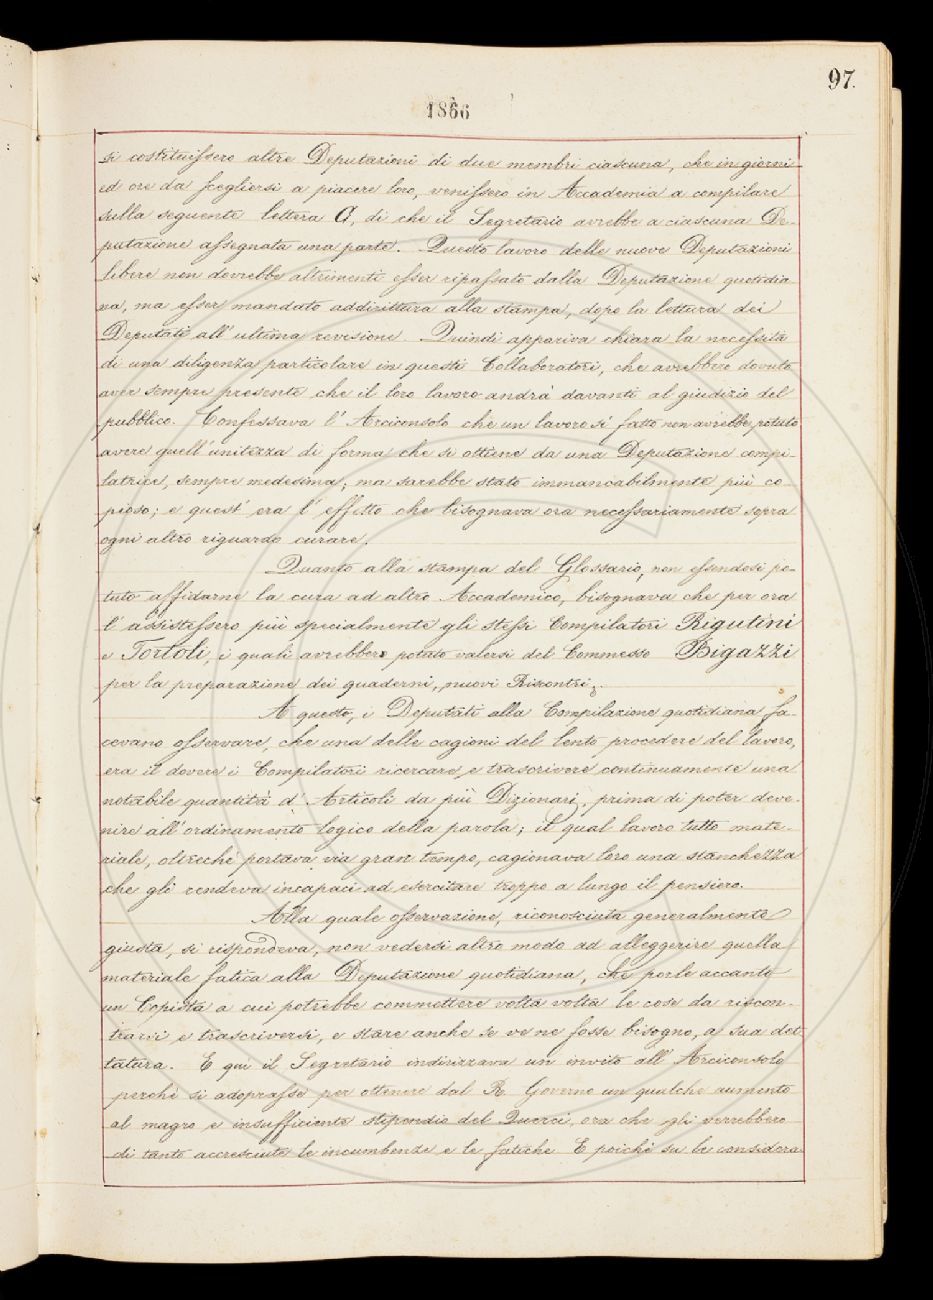 97.
1866
si costituissero altre Deputazioni di due membri ciascuna, che in giorni
ed ore da scegliersi a piacere loro, venissero in Accademia a compilare
sulla seguente lettera O, di che il Segretario avrebbe a ciascuna De-
putazione assegnata una parte. Questo lavoro delle nuove Deputazioni
libere non dovrebbe altrimenti esser ripassato dalla Deputazione quotidia
na, ma esser mandato addirittura alla stampa, dopo la lettura dei
Deputati all' ultima revisione. Quindi appariva chiara la necessità
di una diligenza particolare in questi Collaboratori, che avrebbero dovuto
aver sempre presente che il loro lavoro andrà davanti al giudizio del
pubblico. Confessava l' Arciconsolo che un lavoro sì fatto non avrebbe potuto
avere quell' unitezza di forma che si ottiene da una Deputazione compi-
latrice, sempre medesima; ma sarebbe stato immancabilmente più co-
pioso; e quest' era l' effetto che bisognava ora necessariamente sopra
ogni altro riguardo curare.
Quanto alla stampa del Glossario, non essendosi po-
tuto affidarne la cura ad altro Accademico, bisognava che per ora
l' assistessero più specialmente gli stessi Compilatori Rigutini
e Tortoli, i quali avrebbero potuto valersi del Commesso Bigazzi
per la preparazione dei quaderni, nuovi Riscontri.
A questo, i Deputati alla Compilazione quotidiana fa-
cevano osservare, che una delle cagioni del lento procedere del lavoro,
era il dovere i Compilatori ricercare e trascrivere continuamente una
notabile quantità d' Articoli da più Dizionarj, prima di poter deve-
nire all' ordinamento logico della parola; il qual lavoro tutto mate-
riale, oltreché portava via gran tempo, cagionava loro una stanchezza
che gli rendeva incapaci ad esercitare troppo a lungo il pensiero.
Alla quale osservazione, riconosciuta generalmente
giusta, si rispondeva, non vedersi altro modo ad alleggerire quella
materiale fatica alla Deputazione quotidiana, che porle accanto
un Copista a cui potrebbe commettere volta volta le cose da riscon-
trarsi e trascriversi, e stare anche se ve ne fosse bisogno, a sua det-
tatura. E qui il Segretario indirizzava un invito all' Arciconsolo
perché si adoprasse per ottenere dal R. Governo un qualche aumento
al magro e insufficiente stipendio del Querci, ora che gli verrebbero
di tanto accresciute le incumbenze e le fatiche. E poiché su le considera-